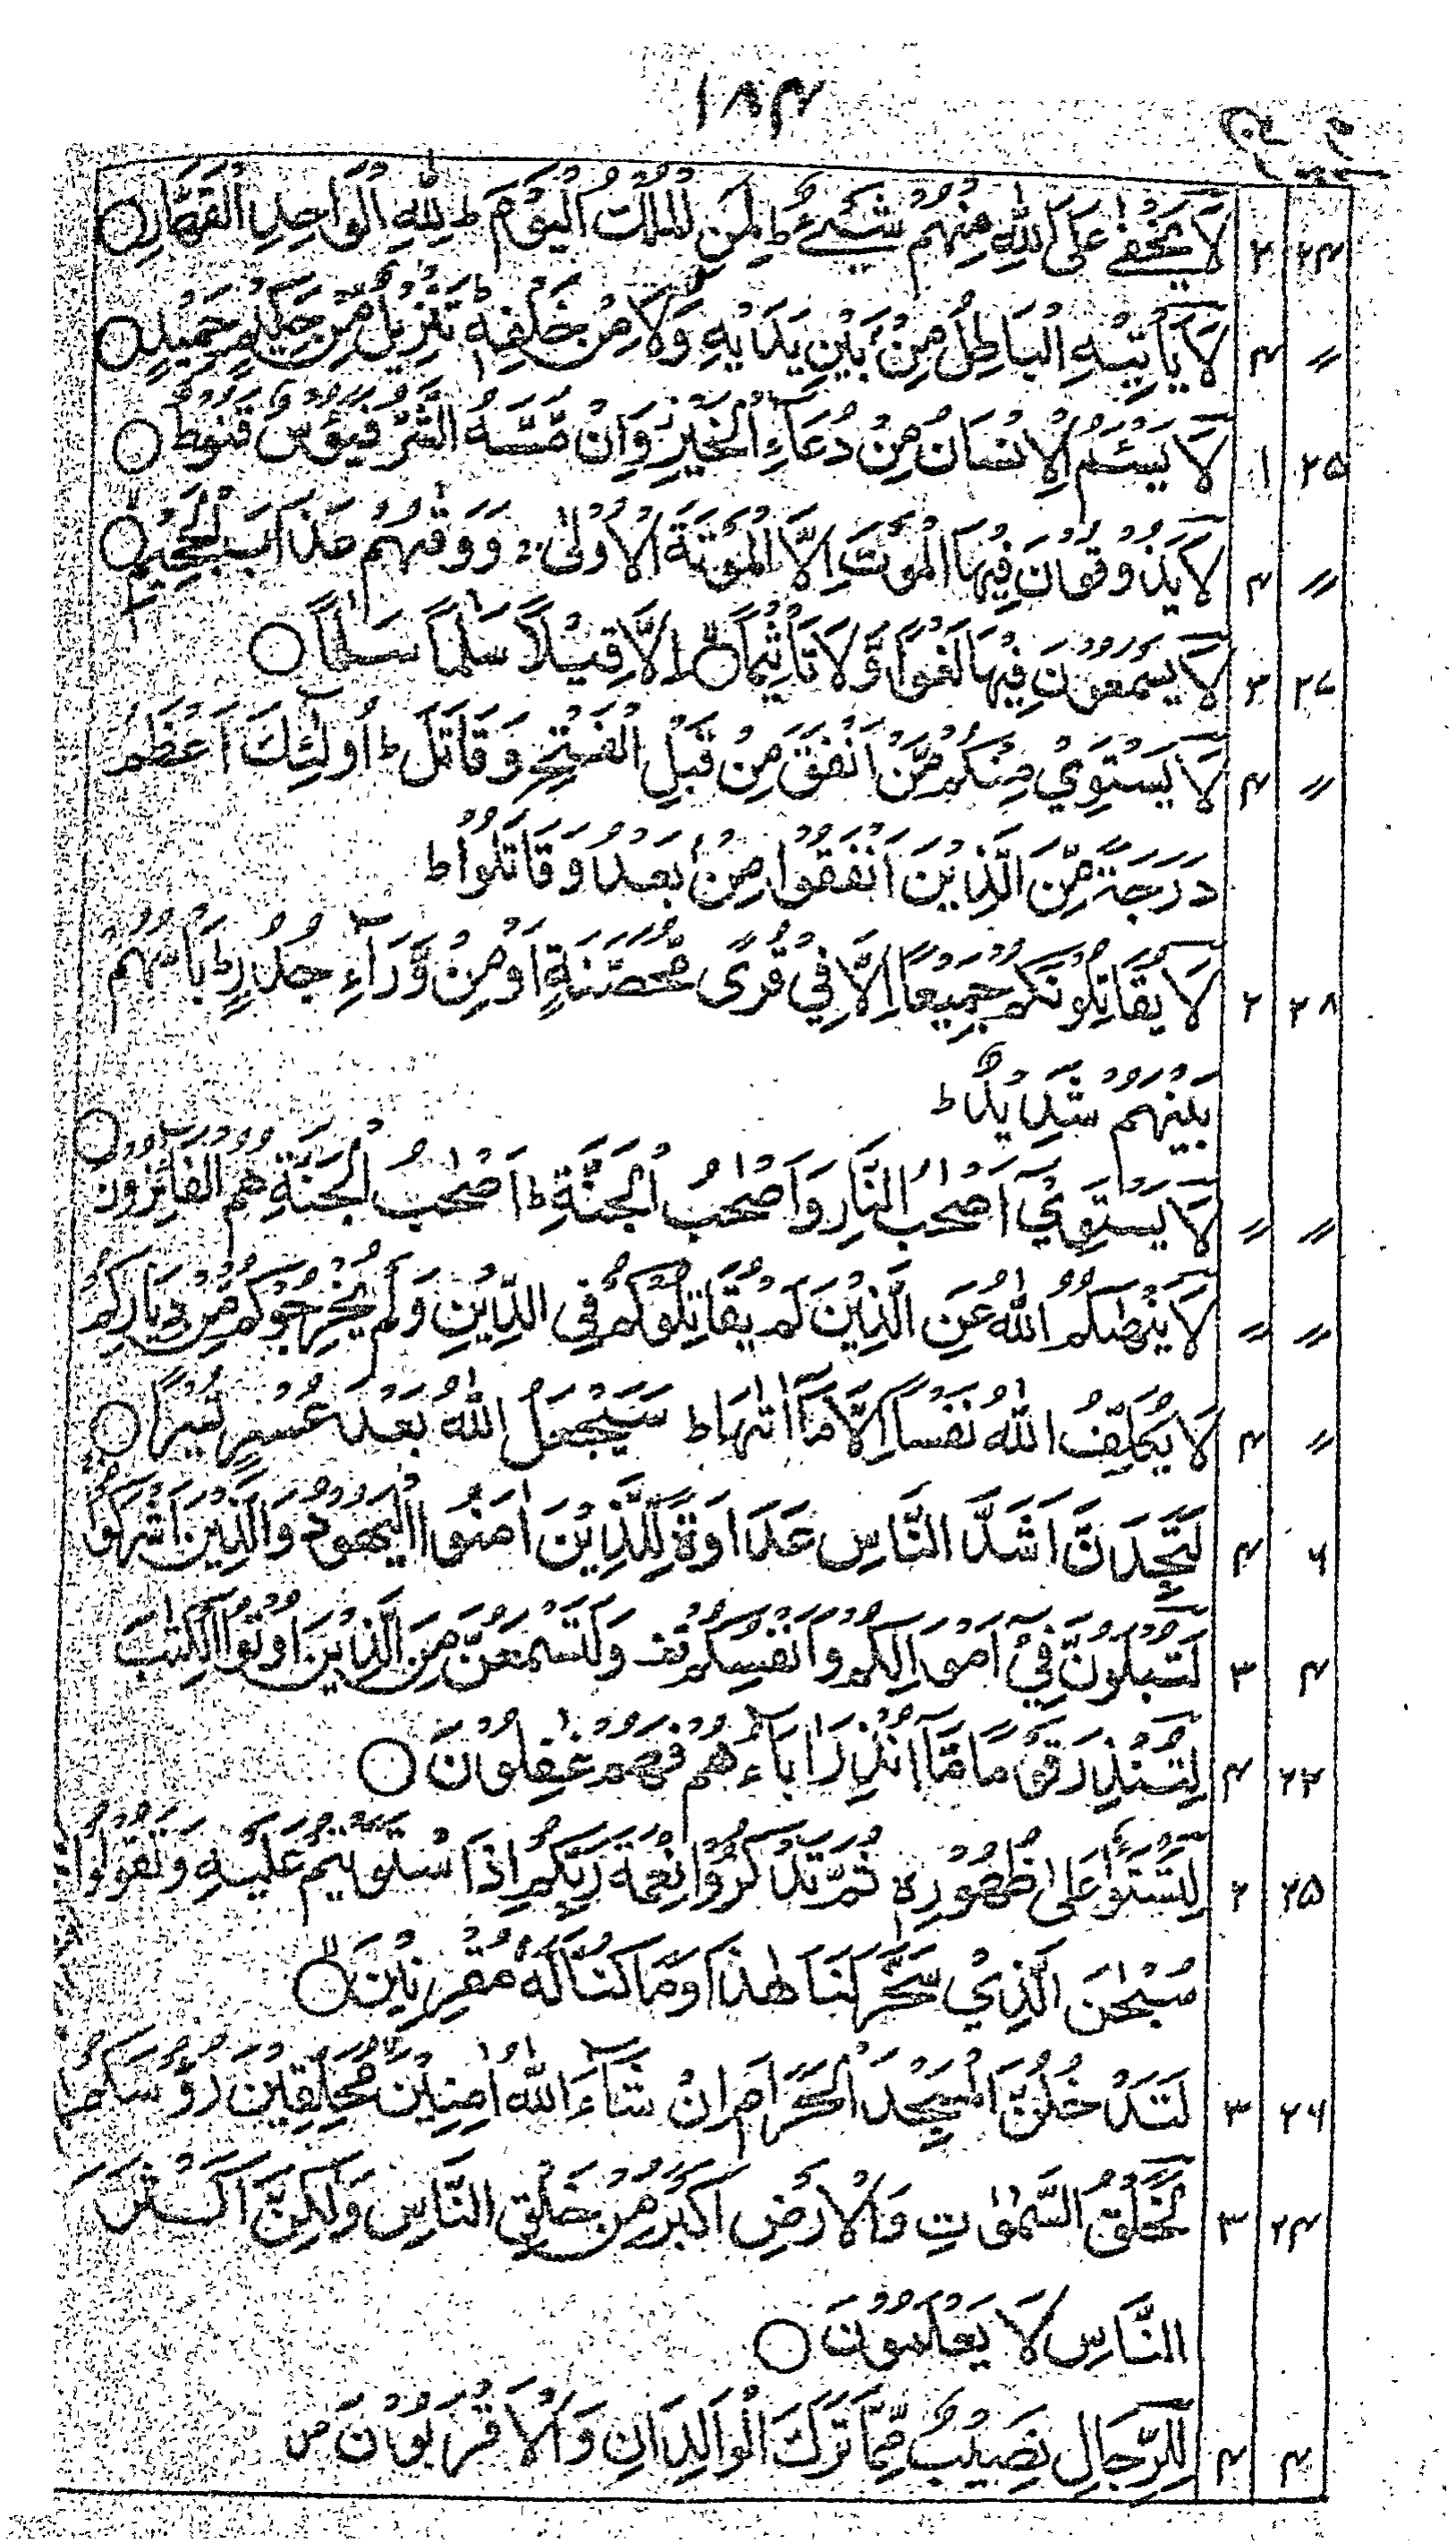 ۱۸۴
۲۴ ۲ لَا يَخْفٰى عَلَى اللّٰهِ مِنْهُمْ شَيْءٌ ط لِمَنِ الْمُلْكُ الْيَوْمَ ط لِلّٰهِ الْوَاحِدِ الْقَهَّارِ ○
〃 ۴ لَا يَأْتِيْهِ الْبَاطِلُ مِنْۢ بَيْنِ يَدَيْهِ وَلَا مِنْ خَلْفِهٖ ط تَنْزِيْلٌ مِّنْ حَكِيْمٍ حَمِيْدٍ ○
۲۵ ۱ لَا يَسْئَمُ الْاِنْسَانُ مِنْ دُعَآءِ الْخَيْرِ ز وَاِنْ مَّسَّهُ الشَّرُّ فَيَئُوْسٌ قَنُوْطٌ ○
〃 ۴ لَا يَذُوْقُوْنَ فِيْهَا الْمَوْتَ اِلَّا الْمَوْتَةَ الْاُوْلٰى ج وَوَقٰهُمْ عَذَابَ الْجَحِيْمِ ○
۲۷ ۳ لَا يَسْمَعُوْنَ فِيْهَا لَغْوًا وَّلَا تَأْثِيْمًا ○ اِلَّا قِيْلًا سَلٰمًا سَلٰمًا ○
〃 ۴ لَا يَسْتَوِيْ مِنْكُمْ مَّنْ اَنْفَقَ مِنْ قَبْلِ الْفَتْحِ وَقَاتَلَ ط اُولٰٓئِكَ اَعْظَمُ
دَرَجَةً مِّنَ الَّذِيْنَ اَنْفَقُوْا مِنْۢ بَعْدُ وَقَاتَلُوْا ط
۲۸ ۲ لَا يُقَاتِلُوْنَكُمْ جَمِيْعًا اِلَّا فِيْ قُرًى مُّحَصَّنَةٍ اَوْ مِنْ وَّرَآءِ جُدُرٍ ط بَاْسُهُمْ
بَيْنَهُمْ شَدِيْدٌ ط
〃 〃 لَا يَسْتَوِيْٓ اَصْحٰبُ النَّارِ وَاَصْحٰبُ الْجَنَّةِ ط اَصْحٰبُ الْجَنَّةِ هُمُ الْفَآئِزُوْنَ ○
〃 〃 لَا يَنْهٰىكُمُ اللّٰهُ عَنِ الَّذِيْنَ لَمْ يُقَاتِلُوْكُمْ فِى الدِّيْنِ وَلَمْ يُخْرِجُوْكُمْ مِّنْ دِيَارِكُمْ
〃 ۴ لَا يُكَلِّفُ اللّٰهُ نَفْسًا اِلَّا مَآ اٰتٰىهَا ط سَيَجْعَلُ اللّٰهُ بَعْدَ عُسْرٍ يُّسْرًا ○
۶ ۴ لَتَجِدَنَّ اَشَدَّ النَّاسِ عَدَاوَةً لِّلَّذِيْنَ اٰمَنُوا الْيَهُوْدَ وَالَّذِيْنَ اَشْرَكُوْا
۴ ۳ لَتُبْلَوُنَّ فِيْٓ اَمْوَالِكُمْ وَاَنْفُسِكُمْ قف وَلَتَسْمَعُنَّ مِنَ الَّذِيْنَ اُوْتُوا الْكِتٰبَ
۲۲ ۴ لِتُنْذِرَ قَوْمًا مَّآ اُنْذِرَ اٰبَآؤُهُمْ فَهُمْ غٰفِلُوْنَ ○
۲۵ ۲ لِتَسْتَوٗا عَلٰى ظُهُوْرِهٖ ثُمَّ تَذْكُرُوْا نِعْمَةَ رَبِّكُمْ اِذَا اسْتَوَيْتُمْ عَلَيْهِ وَتَقُوْلُوْا
سُبْحٰنَ الَّذِيْ سَخَّرَ لَنَا هٰذَا وَمَا كُنَّا لَهٗ مُقْرِنِيْنَ ○
۲۶ ۳ لَتَدْخُلُنَّ الْمَسْجِدَ الْحَرَامَ اِنْ شَآءَ اللّٰهُ اٰمِنِيْنَ مُحَلِّقِيْنَ رُءُوْسَكُمْ
۲۴ ۳ لَخَلْقُ السَّمٰوٰتِ وَالْاَرْضِ اَكْبَرُ مِنْ خَلْقِ النَّاسِ وَلٰكِنَّ اَكْثَرَ
النَّاسِ لَا يَعْلَمُوْنَ ○
۴ ۴ لِلرِّجَالِ نَصِيْبٌ مِّمَّا تَرَكَ الْوَالِدَانِ وَالْاَقْرَبُوْنَ ص